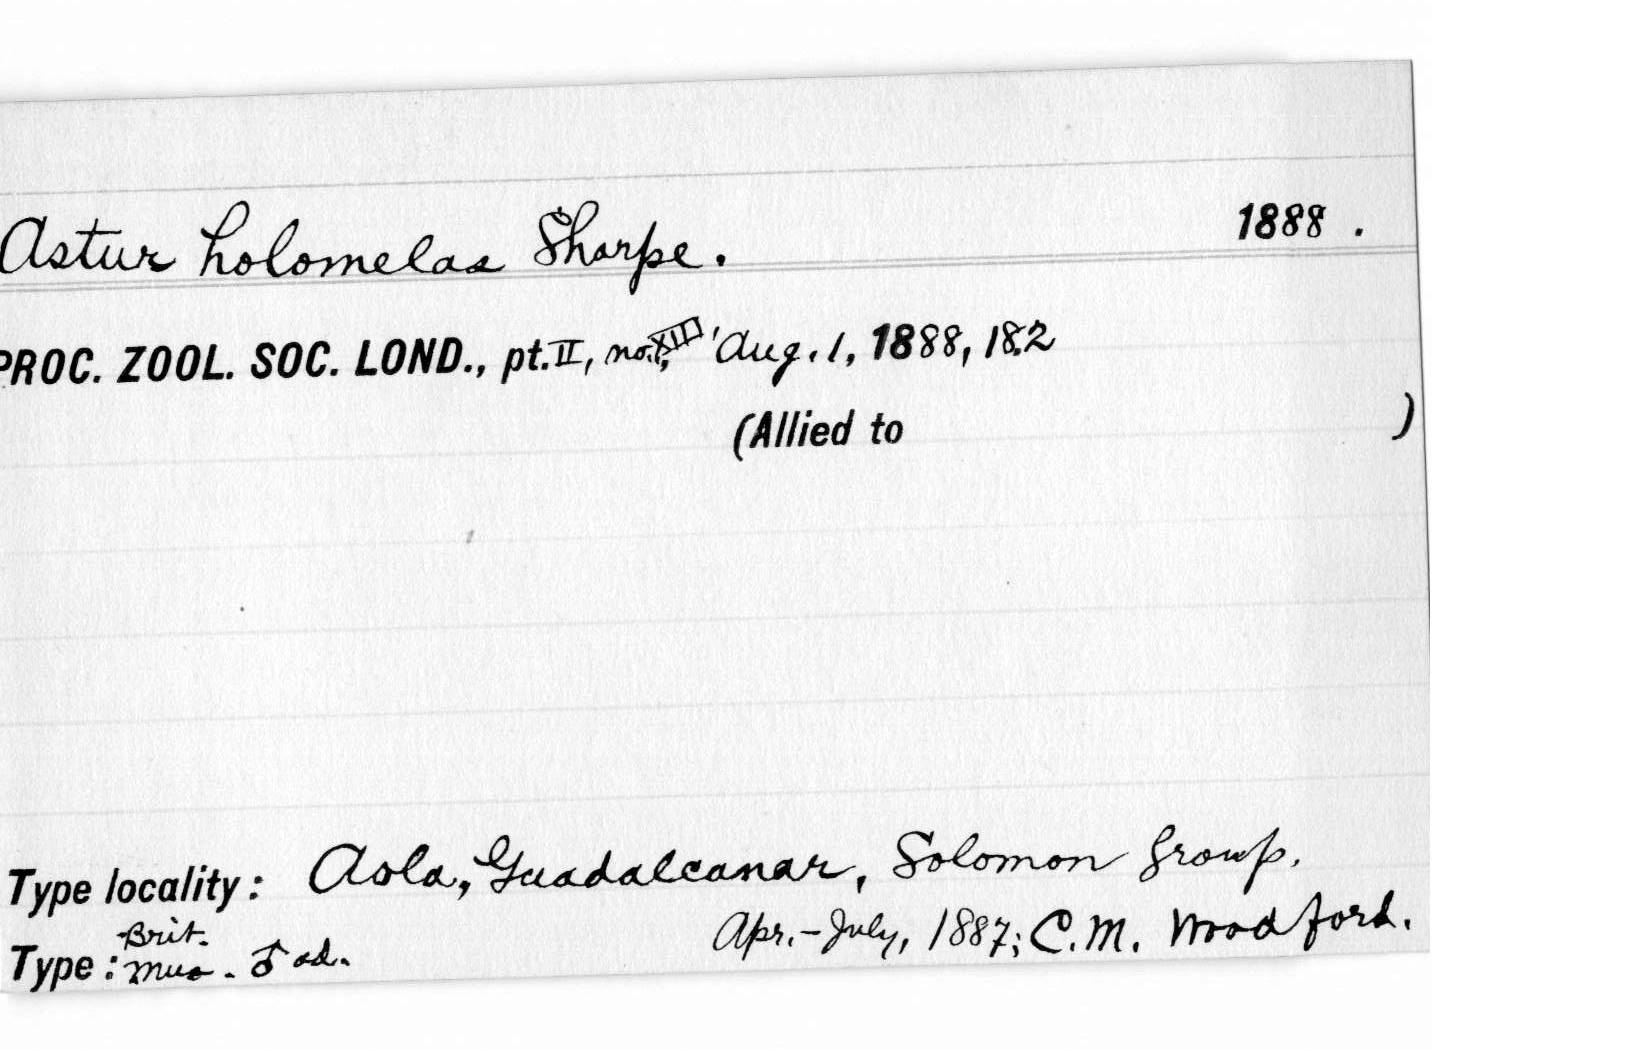 Astur holomelas Sharpe. 1888.
PROC. ZOOL. SOC. LOND., pt. II, no. XIII, Aug. 1, 1888, 182
(Allied to )
Type locality: Aola, Guadalcanar, Solomon Group.
Apr.-July, 1887; C.M. Woodford.
Type: Brit. Mus. ♂ ad.